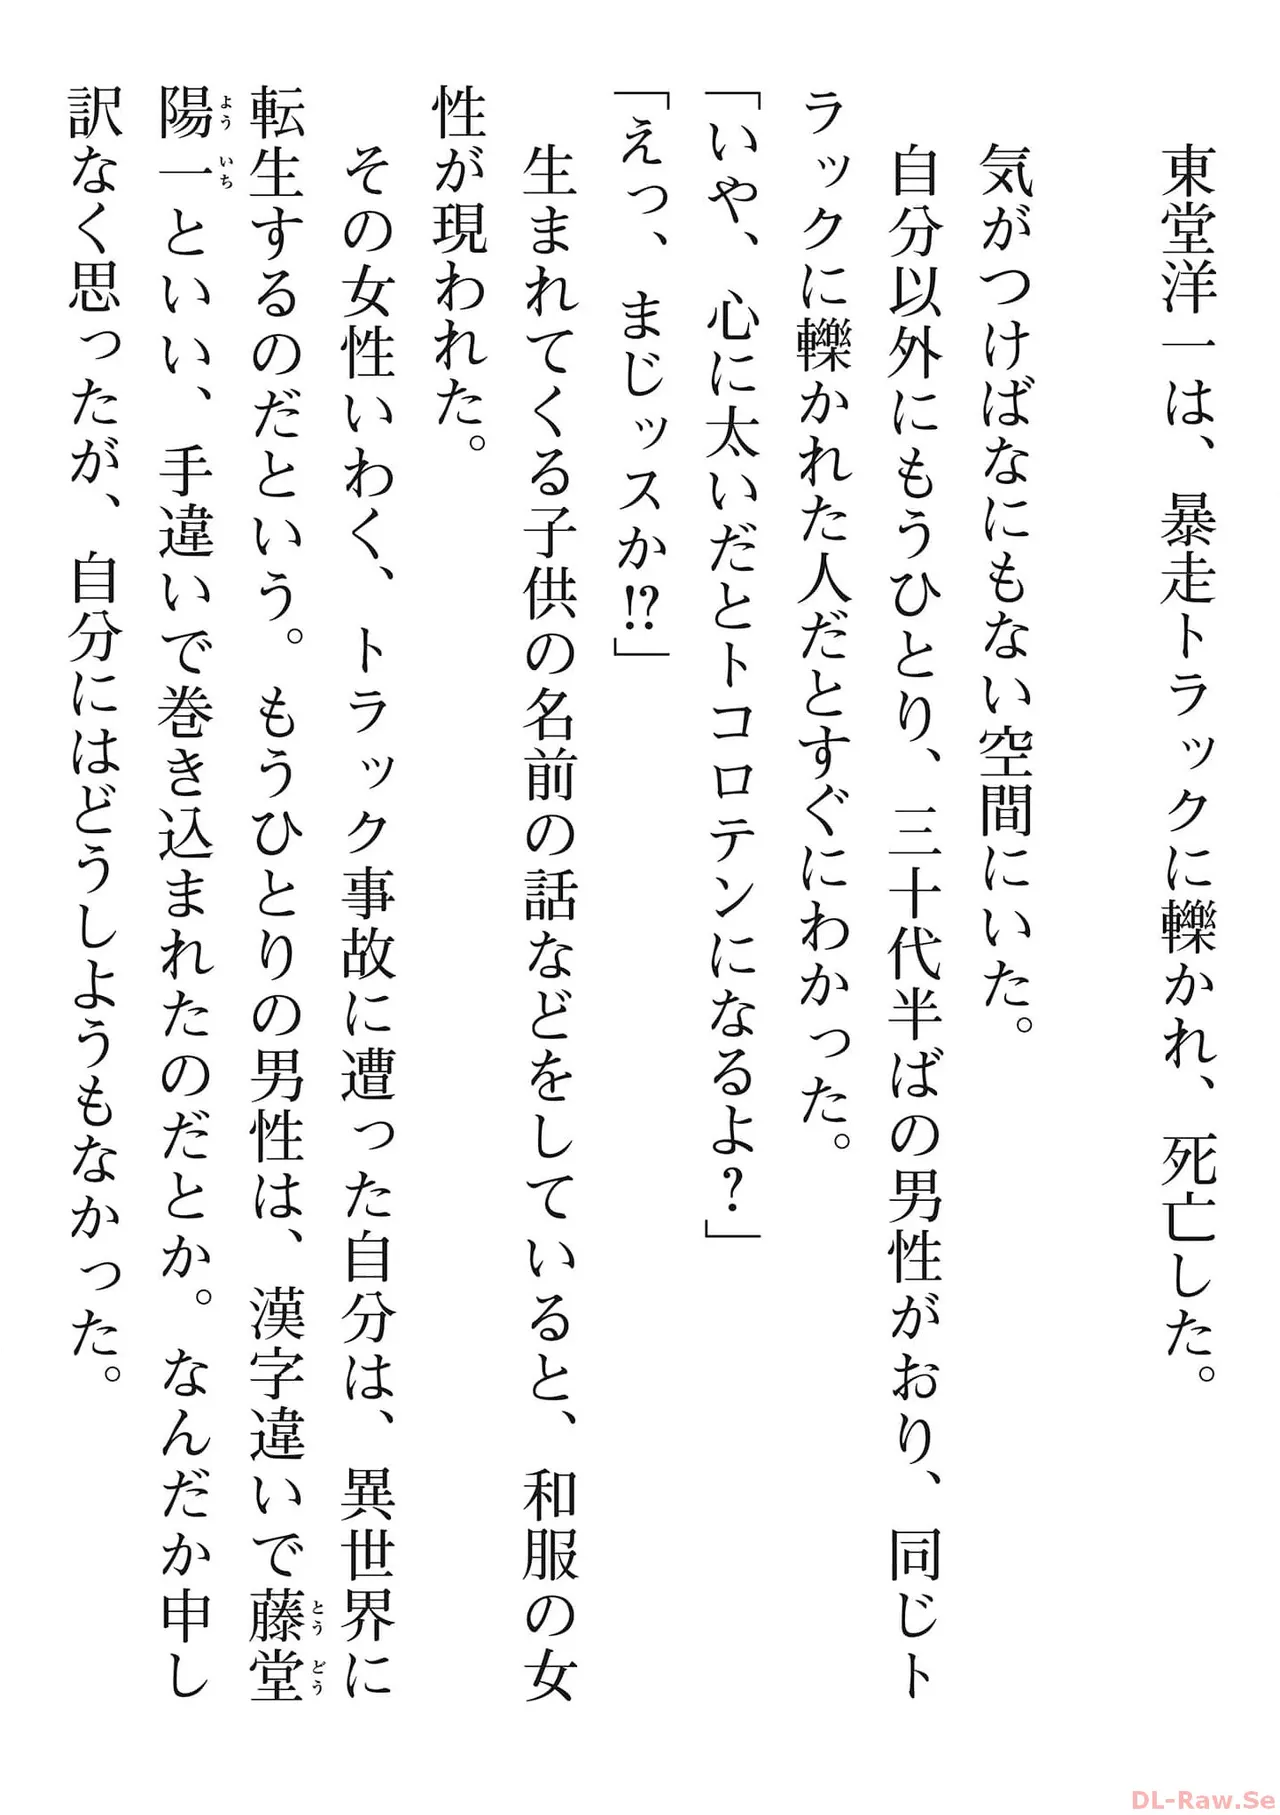 東堂洋一は、暴走トラックに轢かれ、死亡した。
気がつけばなにもない空間にいた。
自分以外にもうひとり、三十代半ばの男性がおり、同じト
ラックに轢かれた人だとすぐにわかった。
「いや、心に太いだとトコロテンになるよ?」
「えっ、まじッスか!?」
生まれてくる子供の名前の話などをしていると、和服の女
性が現われた。
その女性いわく、トラック事故に遭った自分は、異世界に
転生するのだという。もうひとりの男性は、漢字違いで藤堂
とうどう
陽一といい、手違いで巻き込まれたのだとか。なんだか申し
よういち
訳なく思ったが、自分にはどうしようもなかった。
DL-Raw.Se